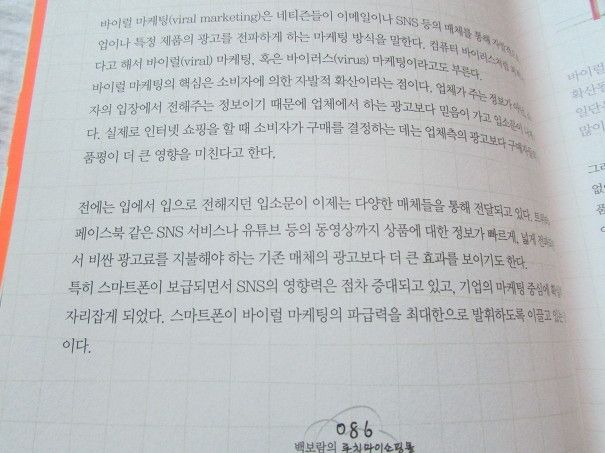 바이럴 마케팅(viral marketing)은 네티즌들이 이메일이나 SNS 등의 매체를 통해
업이나 특정 제품의 광고를 전파하게 하는 마케팅 방식을 말한다. 컴퓨터
다고 해서 바이럴(viral) 마케팅, 혹은 바이러스(virus) 마케팅이라고도 부른다.
바이럴 마케팅의 핵심은 소비자에 의한 자발적 확산이라는 점이다. 업체가 주는 정보가
자의 입장에서 전해주는 정보이기 때문에 업체에서 하는 광고보다 믿음이 가고
다. 실제로 인터넷 쇼핑을 할 때 소비자가 구매를 결정하는 데는 업체측의 광고보다
품평이 더 큰 영향을 미친다고 한다.
전에는 입에서 입으로 전해지던 입소문이 이제는 다양한 매체들을 통해 전달되고 있다.
페이스북 같은 SNS 서비스나 유튜브 등의 동영상까지 상품에 대한 정보가 빠르게, 넓게
서 비싼 광고료를 지불해야 하는 기존 매체의 광고보다 더 큰 효과를 보이기도 한다.
특히 스마트폰이 보급되면서 SNS의 영향력은 점차 증대되고 있고, 기업의 마케팅 중심에
자리잡게 되었다. 스마트폰이 바이럴 마케팅의 파급력을 최대한으로 발휘하도록 이끌고 있는
이다.
086
백보람의 뚜치마이쇼핑몰
바이
확산
일단
많이
그리
없
품